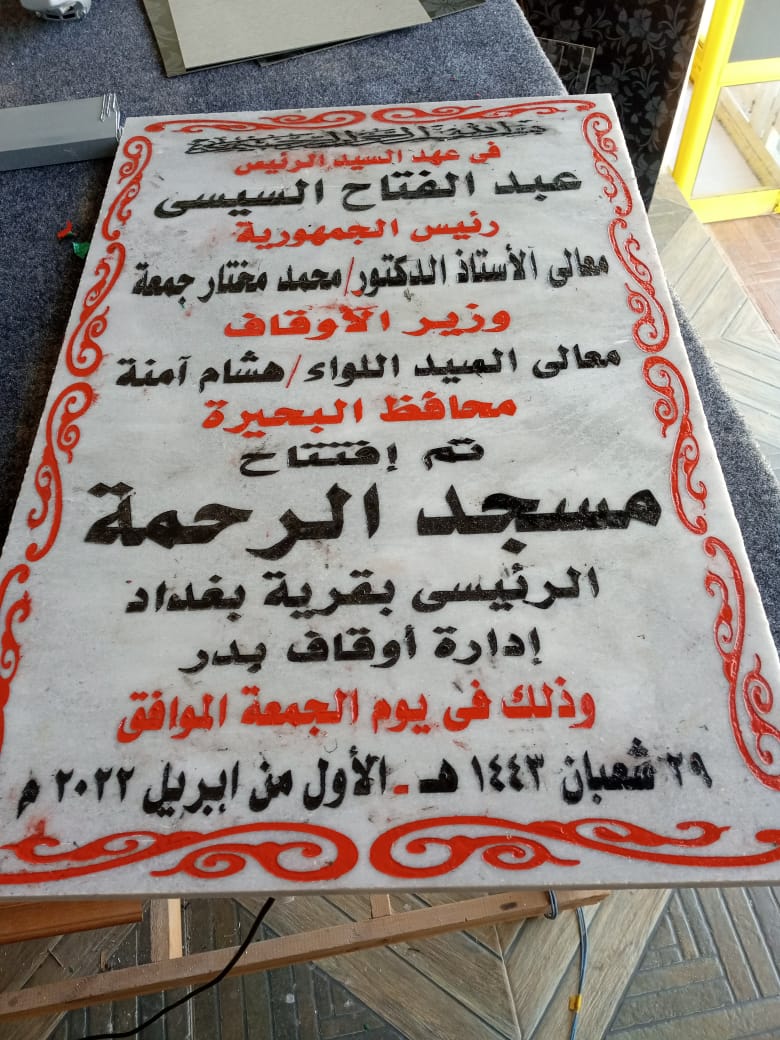 فى عهد السيد الرئيس
عبد الفتاح السيسى
رئيس الجمهورية
معالى الأستاذ الدكتور/محمد مختار جمعة
وزير الأوقاف
معالى السيد اللواء/هشام آمنة
محافظ البحيرة
تم إفتتاح
مسجد الرحمة
الرئيسى بقرية بغداد
إدارة أوقاف بدر
وذلك فى يوم الجمعة الموافق
٢٩ شعبان ١٤٤٣ هـ - الأول من ابريل ٢٠٢٢ م